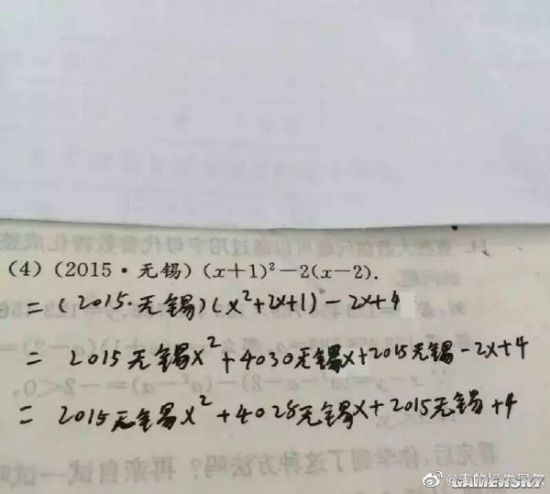 (4)(2015·无锡)(x+1)²-2(x-2).
=(2015·无锡)(x²+2x+1)-2x+4
= 2015无锡x²+4030无锡x+2015无锡-2x+4
= 2015无锡x²+4028无锡x+2015无锡+4
GAMERSKY